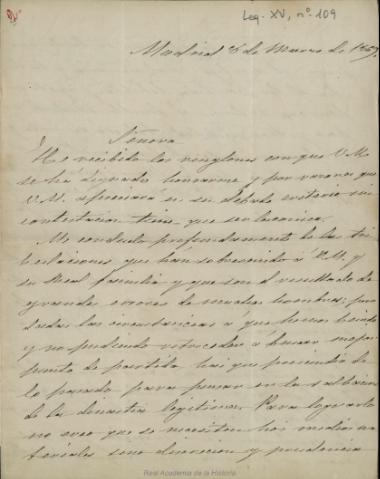 Leg. XV, nº 109
Madrid 8 de Marzo de 1869.
Señora
He recibido los renglones con que V.M.
se ha dignado honrarme y por razones que
V.M. apreciará en su elevado criterio mi
contestacion tiene que ser laconica.
Me conduelo profundamente de las tri
bulaciones que han sobrevenido a V.M. y
su Real familia y que son el resultado de
grandes errores de muchos hombres; pero
dadas las circunstancias a que hemos
y no pudiendo retroceder a buscar mejor
punto de partida hai que prescindir de
lo pasado para pensar en la salvacion
de la dinastia legitima. Para lograrlo
no creo que se necesiten hoi medios ma
teriales sino discrecion y prudencia
Real Academia de la Historia